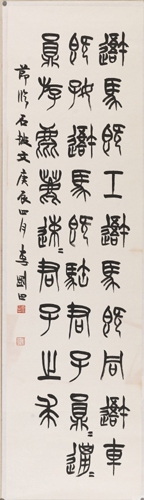 避馬既工避馬既同避車
既好避馬既駐君子員=邋=
員斿麀鹿速=君子之求
節臨石鼓文庚辰四月